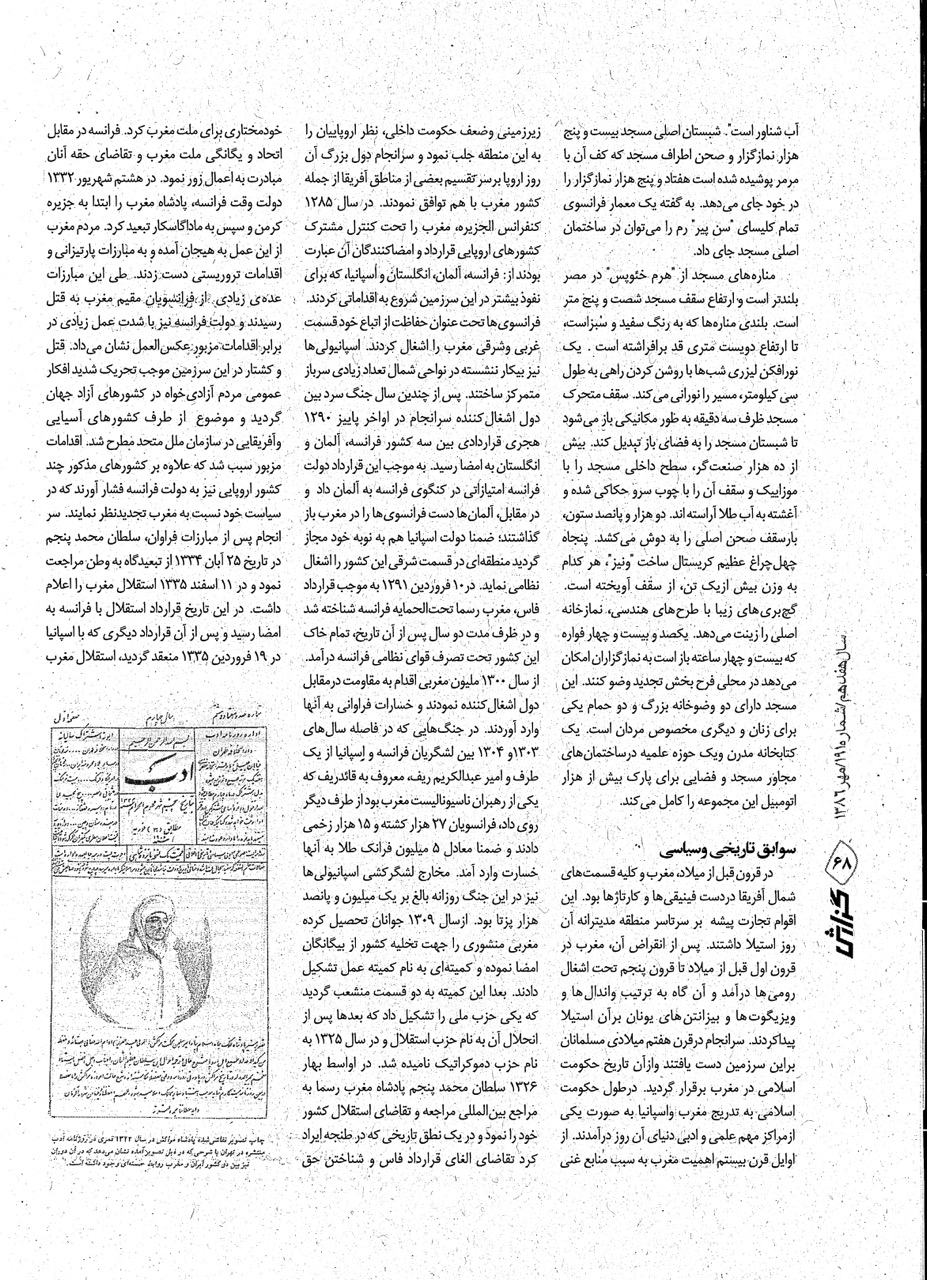 آب شناور است". شبستان اصلی مسجد بیست و پنج
هزار نمازگزار و صحن اطراف مسجد که کف آن با
مرمر پوشیده شده است هفتاد و پنج هزار نمازگزار را
در خود جای می‌دهد. به گفته یک معمار فرانسوی
تمام کلیسای "سن پیر" رم را می‌توان در ساختمان
اصلی مسجد جای داد.
مناره‌های مسجد از "هرم خئوپس" در مصر
بلندتر است و ارتفاع سقف مسجد شصت و پنج متر
است. بلندی مناره‌ها که به رنگ سفید و سبزاست،
تا ارتفاع دویست متری قد برافراشته است . یک
نورافکن لیزری شب‌ها با روشن کردن راهی به طول
سی کیلومتر، مسیر را نورانی می‌کند. سقف متحرک
مسجد ظرف سه دقیقه به طور مکانیکی باز می‌شود
تا شبستان مسجد را به فضای باز تبدیل کند. بیش
از ده هزار صنعت‌گر، سطح داخلی مسجد را با
موزاییک و سقف آن را با چوب سرو حکاکی شده و
آغشته به آب طلا آراسته اند. دو هزار و پانصد ستون،
بارسقف صحن اصلی را به دوش می‌کشد. پنجاه
چهل‌چراغ عظیم کریستال ساخت "ونیز"، هر کدام
به وزن بیش ازیک تن، از سقف آویخته است.
گچ‌بری‌های زیبا با طرح‌های هندسی، نمازخانه
اصلی را زینت می‌دهد. یکصد و بیست و چهار فواره
که بیست و چهار ساعته باز است به نمازگزاران امکان
می‌دهد در محلی فرح بخش تجدید وضو کنند. این
مسجد دارای دو وضوخانه بزرگ و دو حمام یکی
برای زنان و دیگری مخصوص مردان است. یک
کتابخانه مدرن ویک حوزه علمیه درساختمان‌های
مجاور مسجد و فضایی برای پارک بیش از هزار
اتومبیل این مجموعه را کامل می‌کند.
سوابق تاریخی وسیاسی
در قرون قبل از میلاد، مغرب و کلیه قسمت‌های
شمال آفریقا دردست فینیقی‌ها و کارتاژها بود. این
اقوام تجارت پیشه بر سرتاسر منطقه مدیترانه آن
روز استیلا داشتند. پس از انقراض آن، مغرب در
قرون اول قبل از میلاد تا قرون پنجم تحت اشغال
رومی‌ها درآمد و آن گاه به ترتیب واندال‌ها و
ویزیگوت‌ها و بیزانتن‌های یونان برآن استیلا
پیداکردند. سرانجام درقرن هفتم میلادی مسلمانان
براین سرزمین دست یافتند وازآن تاریخ حکومت
اسلامی در مغرب برقرار گردید. درطول حکومت
اسلامی به تدریج مغرب واسپانیا به صورت یکی
ازمراکز مهم علمی و ادبی دنیای آن روز درآمدند. از
اوایل قرن بیستم اهمیت مغرب به سبب منابع غنی
زیرزمینی وضعف حکومت داخلی، نظر اروپاییان را
به این منطقه جلب نمود و سرانجام دول بزرگ آن
روز اروپا برسر تقسیم بعضی از مناطق آفریقا از جمله
کشور مغرب با هم توافق نمودند. در سال ۱۲۸۵
کنفرانس الجزیره، مغرب را تحت کنترل مشترک
کشورهای اروپایی قرارداد و امضاکنندگان آن عبارت
بودند از: فرانسه، آلمان، انگلستان و اسپانیا، که برای
نفوذ بیشتر در این سرزمین شروع به اقداماتی کردند.
فرانسوی‌ها تحت عنوان حفاظت از اتباع خود قسمت
غربی وشرقی مغرب را اشغال کردند. اسپانیولی‌ها
نیز بیکار ننشسته در نواحی شمال تعداد زیادی سرباز
متمرکز ساختند. پس از چندین سال جنگ سرد بین
دول اشغال‌کننده سرانجام در اواخر پاییز ۱۲۹۰
هجری قراردادی بین سه کشور فرانسه، آلمان و
انگلستان به امضا رسید. به موجب این قرارداد دولت
فرانسه امتیازاتی در کنگوی فرانسه به آلمان داد و
در مقابل، آلمان‌ها دست فرانسوی‌ها را در مغرب باز
گذاشتند؛ ضمنا دولت اسپانیا هم به نوبه خود مجاز
گردید منطقه‌ای در قسمت شرقی این کشور را اشغال
نظامی نماید. در۱۰ فروردین ۱۲۹۱ به موجب قرارداد
فاس، مغرب رسما تحت‌الحمایه فرانسه شناخته شد
و در ظرف مدت دو سال پس از آن تاریخ، تمام خاک
این کشور تحت تصرف قوای نظامی فرانسه درآمد.
از سال ۱۳۰۰ ملیون مغربی اقدام به مقاومت درمقابل
دول اشغال‌کننده نمودند و خسارات فراوانی به آنها
وارد آوردند. در جنگ‌هایی که در فاصله سال‌های
۱۳۰۳و ۱۳۰۴ بین لشگریان فرانسه و اسپانیا از یک
طرف و امیر عبدالکریم ریف، معروف به قائدریف که
یکی از رهبران ناسیونالیست مغرب بود از طرف دیگر
روی داد، فرانسویان ۲۷ هزار کشته و ۱۵ هزار زخمی
دادند و ضمنا معادل ۵ میلیون فرانک طلا به آنها
خسارت وارد آمد. مخارج لشگرکشی اسپانیولی‌ها
نیز در این جنگ روزانه بالغ بر یک میلیون و پانصد
هزار پزتا بود. ازسال ۱۳۰۹ جوانان تحصیل کرده
مغربی منشوری را جهت تخلیه کشور از بیگانگان
امضا نموده و کمیته‌ای به نام کمیته عمل تشکیل
دادند. بعدا این کمیته به دو قسمت منشعب گردید
که یکی حزب ملی را تشکیل داد که بعدها پس از
انحلال آن به نام حزب استقلال و در سال ۱۳۲۵ به
نام حزب دموکراتیک نامیده شد. در اواسط بهار
۱۳۲۶ سلطان محمد پنجم پادشاه مغرب رسما به
مراجع بین‌المللی مراجعه و تقاضای استقلال کشور
خود را نمود و در یک نطق تاریخی که در طنجه ایراد
کرد تقاضای الغای قرارداد فاس و شناختن حق
خودمختاری برای ملت مغرب کرد. فرانسه در مقابل
اتحاد و یگانگی ملت مغرب و تقاضای حقه آنان
مبادرت به اعمال زور نمود. در هشتم شهریور ۱۳۳۲
دولت وقت فرانسه، پادشاه مغرب را ابتدا به جزیره
کرمن و سپس به ماداگاسکار تبعید کرد. مردم مغرب
از این عمل به هیجان آمده و به مبارزات پارتیزانی و
اقدامات تروریستی دست زدند. طی این مبارزات
عده‌ی زیادی از فرانسویان مقیم مغرب به قتل
رسیدند و دولت فرانسه نیز با شدت عمل زیادی در
برابر اقدامات مزبور عکس‌العمل نشان می‌داد. قتل
و کشتار در این سرزمین موجب تحریک شدید افکار
عمومی مردم آزادی‌خواه در کشورهای آزاد جهان
گردید و موضوع از طرف کشورهای آسیایی
وآفریقایی در سازمان ملل متحد مطرح شد. اقدامات
مزبور سبب شد که علاوه بر کشورهای مذکور چند
کشور اروپایی نیز به دولت فرانسه فشار آورند که در
سیاست خود نسبت به مغرب تجدیدنظر نمایند. سر
انجام پس از مبارزات فراوان، سلطان محمد پنجم
در تاریخ ۲۵ آبان ۱۳۳۴ از تبعیدگاه به وطن مراجعت
نمود و در ۱۱ اسفند ۱۳۳۵ استقلال مغرب را اعلام
داشت. در این تاریخ قرارداد استقلال با فرانسه به
امضا رسید و پس از آن قرارداد دیگری که با اسپانیا
در ۱۹ فروردین ۱۳۳۵ منعقد گردید، استقلال مغرب
صفحه اول
سال چهارم
ادب
چاپ تصویر نقاشی‌شده پادشاه مراکش در سال ۱۳۲۲ قمری در روزنامه ادب
منتشره در تهران با شرحی که در ذیل تصویر آمده نشان می‌دهد که در آن دوران
نیز بین دو کشور ایران و مغرب روابط حسنه‌ای وجود داشته است.
سال هفدهم/شماره ۱۹۱/مهر ۱۳۸۶
۶۸
گزارش